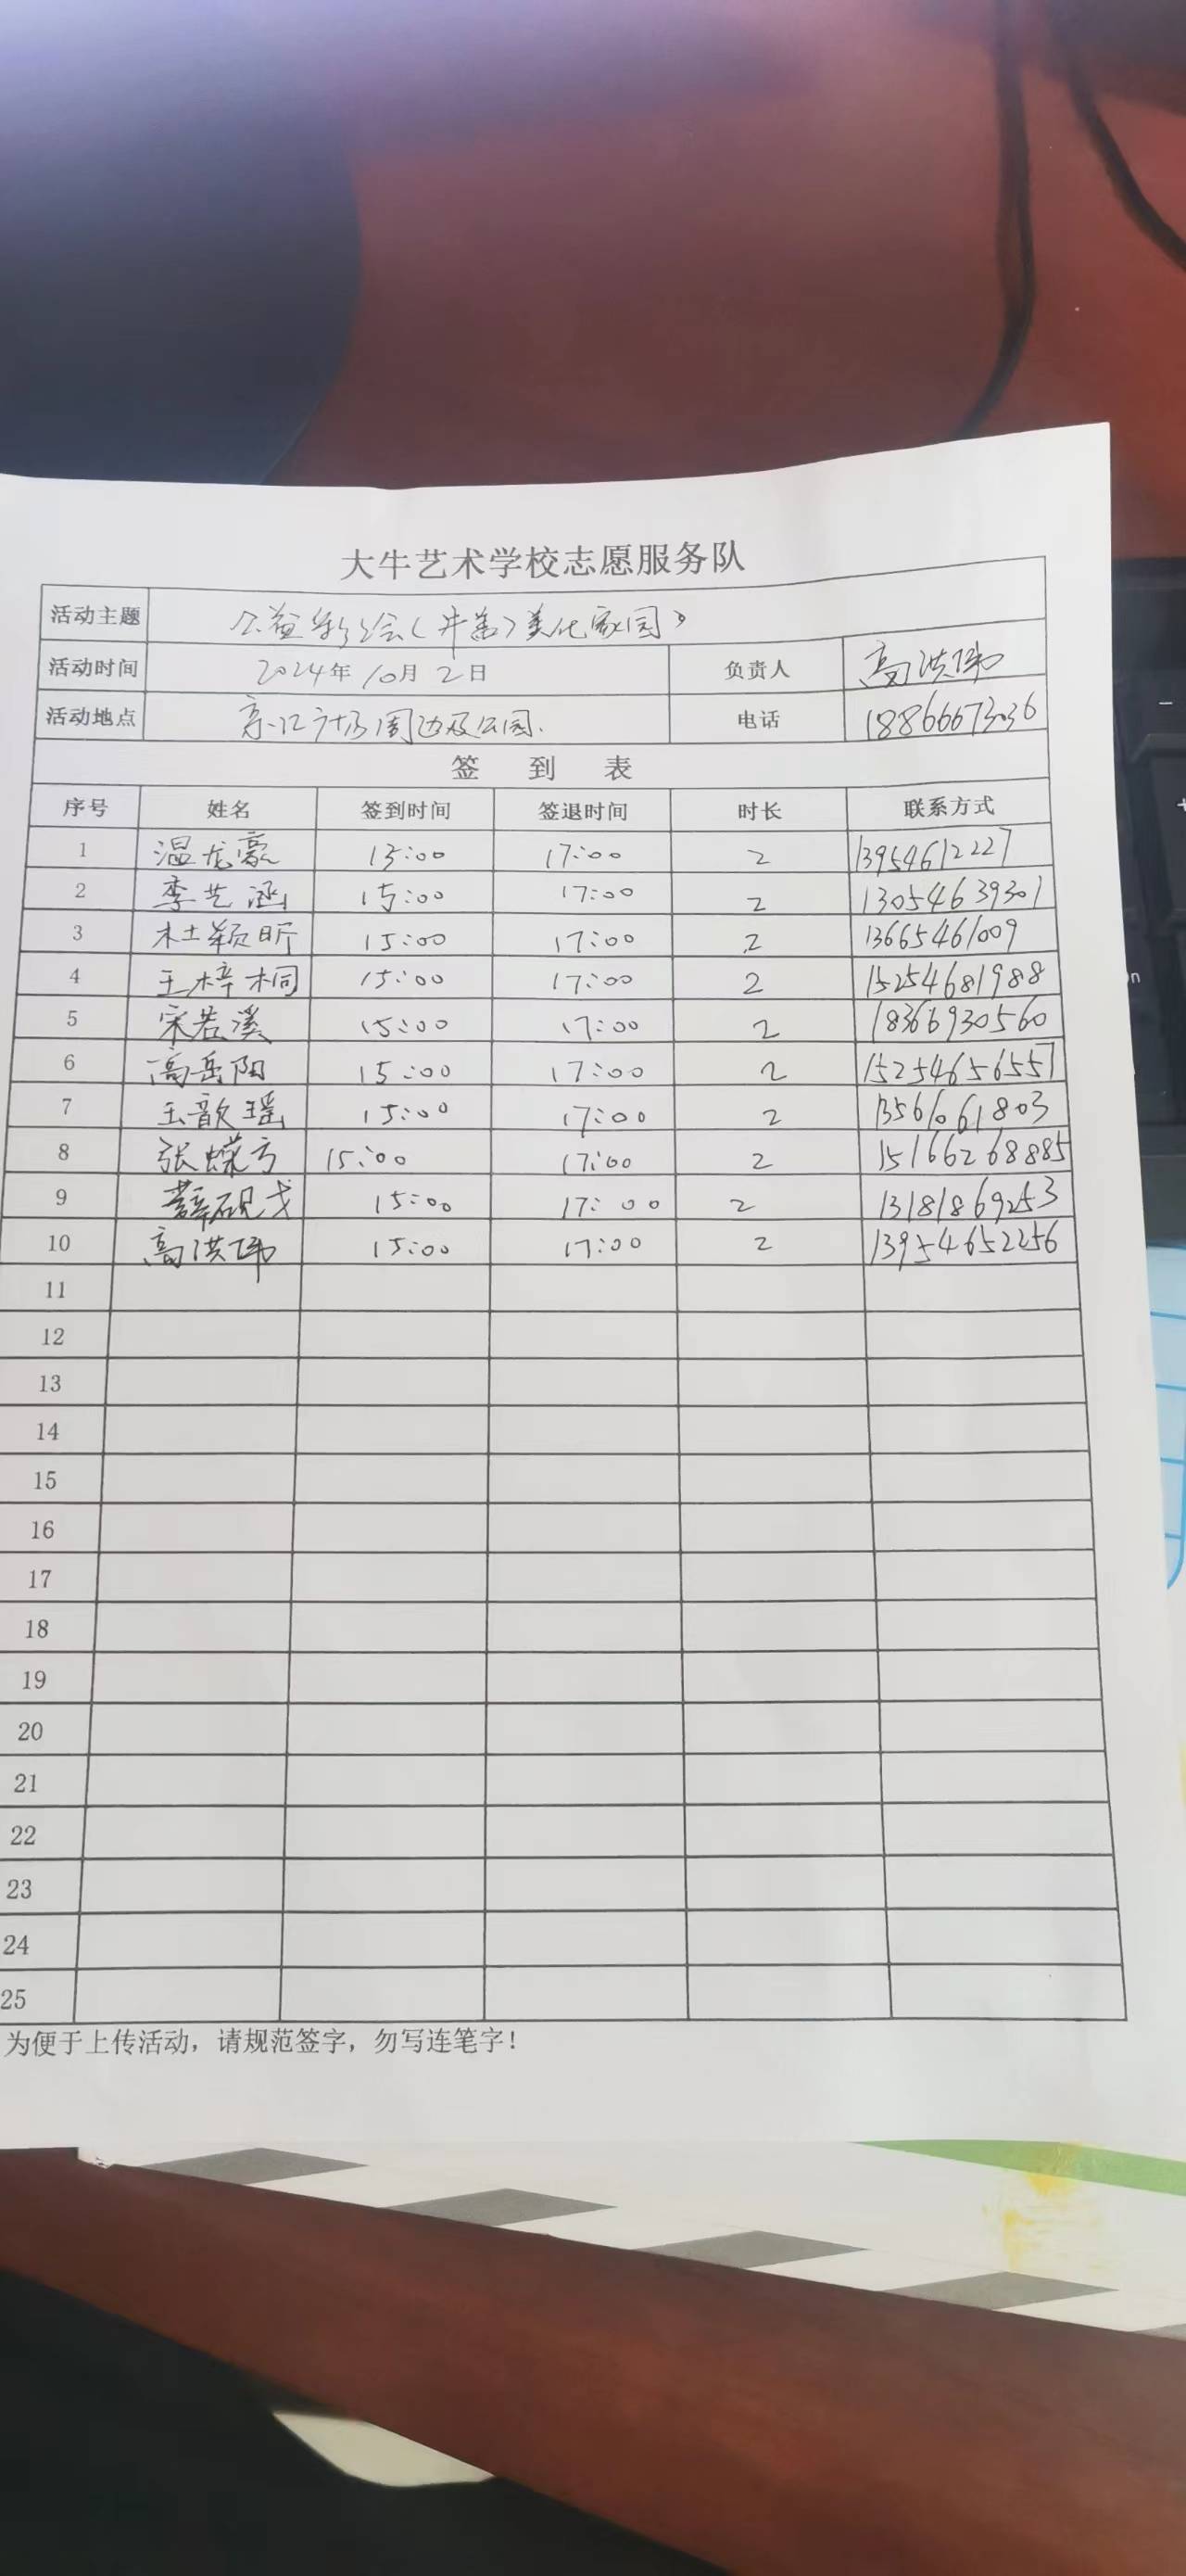 大牛艺术学校志愿服务队
活动主题 公益彩绘(井盖)美化家园》
活动时间 2024年10月2日 负责人 高洪伟
活动地点 广场周边及公园. 电话 18866673036
签 到 表
序号 姓名 签到时间 签退时间 时长 联系方式
1 温龙豪 15:00 17:00 2 13954612227
2 李艺涵 15:00 17:00 2 13054639301
3 杜颖昕 15:00 17:00 2 13665461009
4 王梓桐 15:00 17:00 2 15254681988
5 宋若溪 15:00 17:00 2 18366930560
6 高岳阳 15:00 17:00 2 15254656557
7 王歆瑶 15:00 17:00 2 13561061803
8 张蝶方 15:00 17:00 2 15166268885
9 薛砚戈 15:00 17:00 2 13181869253
10 高洪伟 15:00 17:00 2 13954652256
11
12
13
14
15
16
17
18
19
20
21
22
23
24
25
为便于上传活动，请规范签字，勿写连笔字！